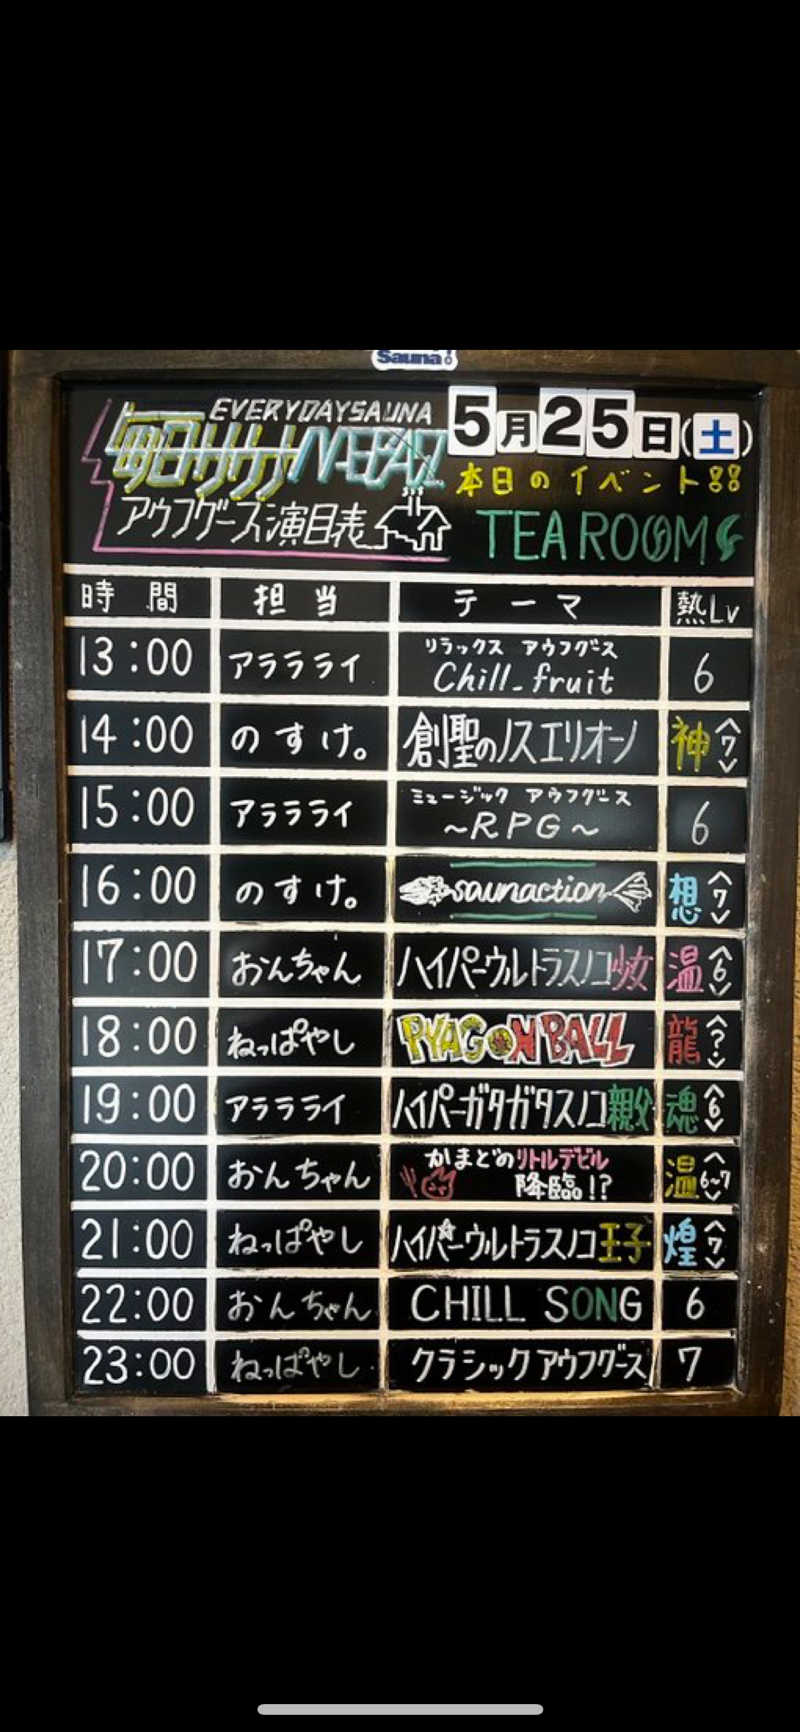 Sauna!
EVERYDAYSAUNA
毎日サウナ
アウフグース演目表
5月25日(土)
本日のイベント!!
TEA ROOM
時間 担当 テーマ 熱Lv
13:00 アラララライ リラックス アウフグース Chill_fruit 6
14:00 のすけ。 創聖のノスエリオーン 神<7>
15:00 アララライ ミュージック アウフグース ~RPG~ 6
16:00 のすけ。 saunaction 想<7>
17:00 おんちゃん ハイパーウルトラスノコ少女 温<6>
18:00 ねっぱやし PYAGONBALL 龍<?>
19:00 アララライ ハイパーガタガタスノコ親父 魂<6>
20:00 おんちゃん かまどのリトルデビル降臨!? 温<6~7>
21:00 ねっぱやし ハイパーウルトラスノコ王子 煌<7>
22:00 おんちゃん CHILL SONG 6
23:00 ねっぱやし クラシックアウフグース 7